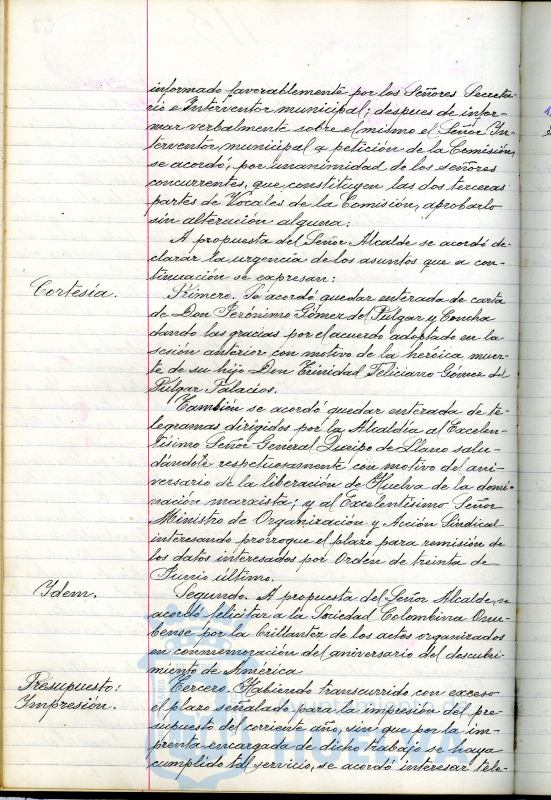 informado favorablemente por los Señores Secreta-
rio e Interventor municipal; despues de infor-
mar verbalmente sobre el mismo el Señor In-
terventor municipal a petición de la Comisión,
se acordó, por unanimidad de los señores
concurrentes, que constituyen las dos terceras
partes de Vocales de la Comisión, aprobarlo
sin alteración alguna.
A propuesta del Señor Alcalde se acordó de-
clarar la urgencia de los asuntos que a con-
tinuación se expresan:
Cortesia.
Primero. Se acordó quedar enterada de carta
de Don Jerónimo Gómez del Pulgar y Concha
dando las gracias por el acuerdo adoptado en la
sesión anterior con motivo de la heróica muer-
te de su hijo Don Trinidad Feliciano Gómez del
Pulgar Palacios.
También se acordó quedar enterada de te-
legramas dirigidos por la Alcaldía al Excelen-
tísimo Señor General Queipo de Llano salu-
dándole respetuosamente con motivo del ani-
versario de la liberación de Huelva de la domi-
nación marxista; y al Excelentísimo Señor
Ministro de Organización y Acción Sindical
interesando prorrogue el plazo para remisión de
los datos interesados por Orden de treinta de
Junio último.
Idem.
Segundo. A propuesta del Señor Alcalde, se
acordó felicitar a la Sociedad Colombina Onu-
bense por la brillantez de los actos organizados
en conmemoración del aniversario del descubri-
miento de América
Presupuesto:
Impresión.
Tercero. Habiendo transcurrido con exceso
el plazo señalado para la impresión del pre-
supuesto del corriente año, sin que por la im-
prenta encargada de dicho trabajo se haya
cumplido tal servicio, se acordó interesar tele-